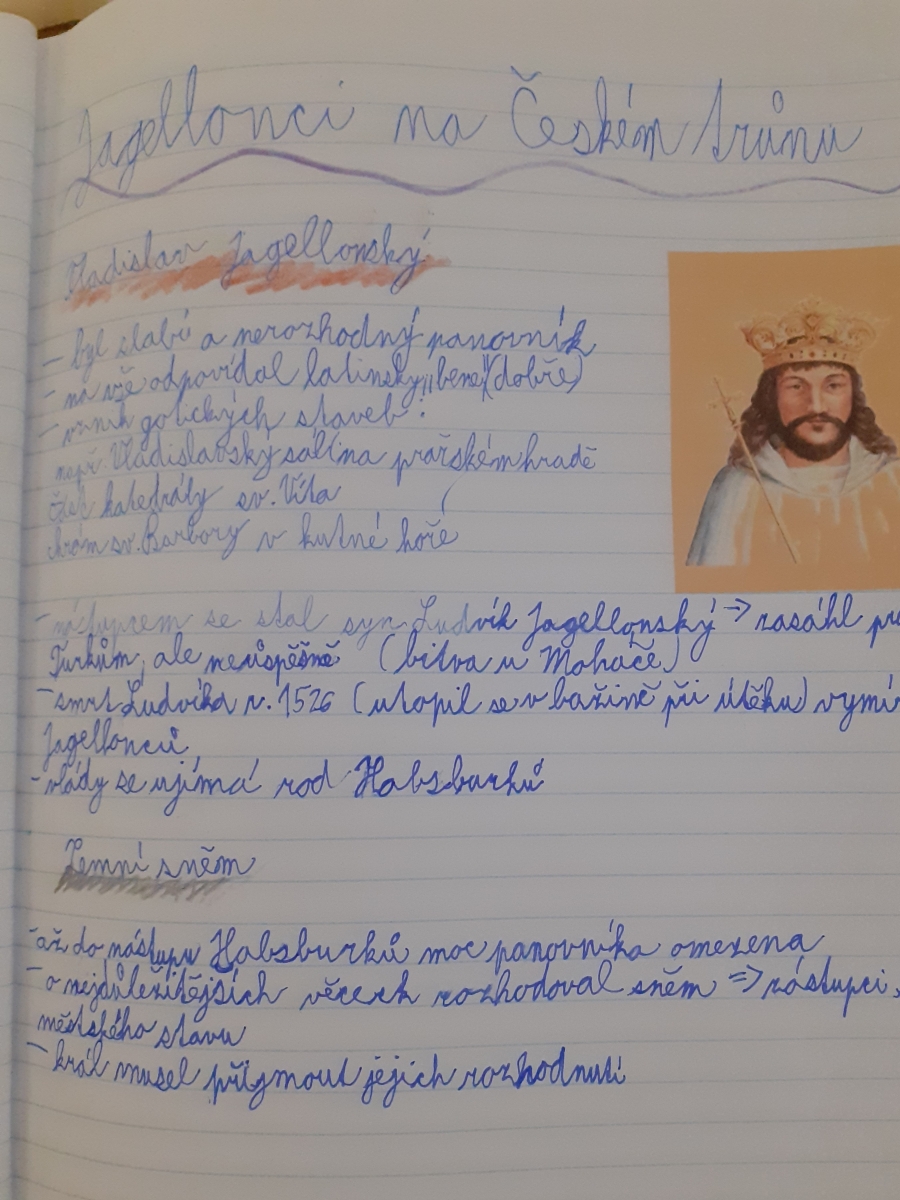 Jagellonci na Českém trůnu
Vladislav Jagellonský
- byl slabí a nerozhodný panovník
- na vše odpovídal latinsky "bene" (dobře)
- vznik gotických staveb:
např. Vladislavský sál na pražském hradě
část katedrály sv. Víta
chrám sv. Barbory v kutné hoře
- nástupcem se stal syn Ludvík Jagellonský => zasáhl pr
Turkům, ale neúspěšně (bitva u Moháče)
- smrt Ludvíka r. 1526 (utopil se v bažině při útěku) vymí
Jagellonců
- vlády se ujímá rod Habsburků
Zemní sněm
- až do nástupu Habsburků moc panovníka omezena
- o nejdůležitějsích věcech rozhodoval sněm => zástupci
městského stavu
- král musel přijmout jejich rozhodnutí